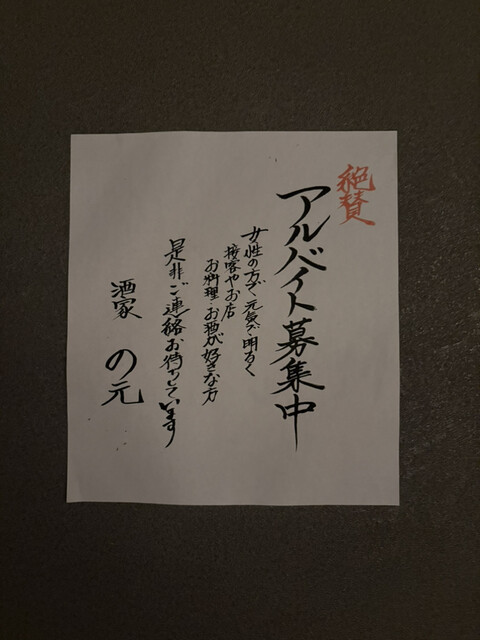 絶賛
アルバイト募集中
女性の方で元気で明るく
接客やお店
お料理・お酒が好きな方
是非ご連絡お待ちしています
酒家 の元